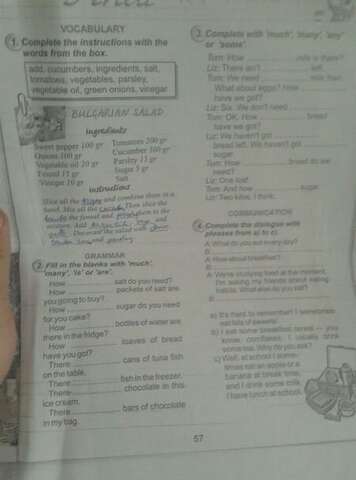 VOCABULARY
1. Complete the instructions with the
words from the box.
add, cucumbers, ingredients, salt,
tomatoes, vegetables, parsley,
vegetable oil, green onions, vinegar
BULGARIAN SALAD
ingredients
Sweet pepper 100 gr Tomatoes 200 gr
Onions 100 gr Cucumber 100 gr
Vegetable oil 20 gr Parsley 15 gr
Fennel 15 gr Sugar 5 gr
Vinegar 10 gr Salt
instructions
Slice all the and combine them in a
the fennel and to the
Decorate the salad with
GRAMMAR
2. Fill in the blanks with 'much',
'many', 'is' or 'are'.
How salt do you need?
How packets of salt are
you going to buy?
How sugar do you need
for you cake?
How bottles of water are
there in the fridge?
How loaves of bread
have you got?
There cans of tuna fish
on the table.
There fish in the freezer.
There chocolate in this
ice cream.
There bars of chocolate
in my bag.
3. Complete with 'much', 'many', 'any'
or 'some'.
Tom: How milk is there?
Liz: There isn't left.
Tom: We need milk then.
What about eggs? How
have we got?
Liz: Six. We don't need
Tom: OK. How bread
have we got?
Liz: We haven't got
bread left. We haven't got
sugar.
Tom: How bread do we
need?
Liz: One loaf.
Tom: And how sugar
Liz: Two kilos, I think.
COMMUNICATION
4. Complete the dialogue with
phrases from a) to c).
A: What do you eat every day?
B:
A: How about breakfast?
B:
A: We're studying food at the moment.
I'm asking my friends about eating
habits. What else do you eat?
B:
a) It's hard to remember! I sometimes
eat lots of sweets!
b) I eat some breakfast cereal — you
know, cornflakes. I usually drink
some tea. Why do you ask?
c) Well, at school I some-
times eat an apple or a
banana at break time,
and I drink some milk.
I have lunch at school.
57